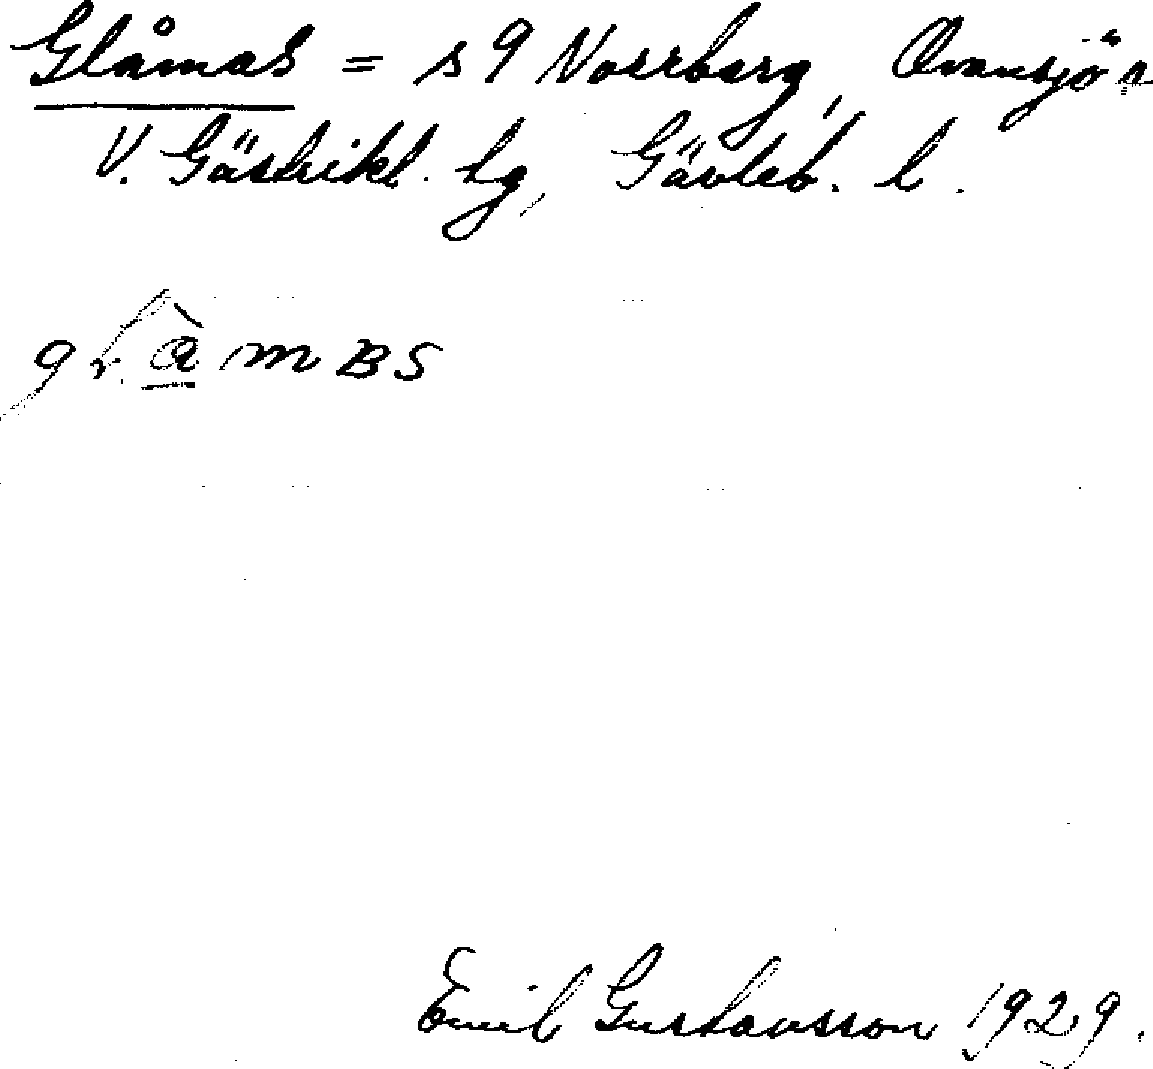 Glåmas = s 9 Norrberg, Ovansjö s
V. Gästrikl. hg, Gävleb. l.
Emil Gustavsson 1929.